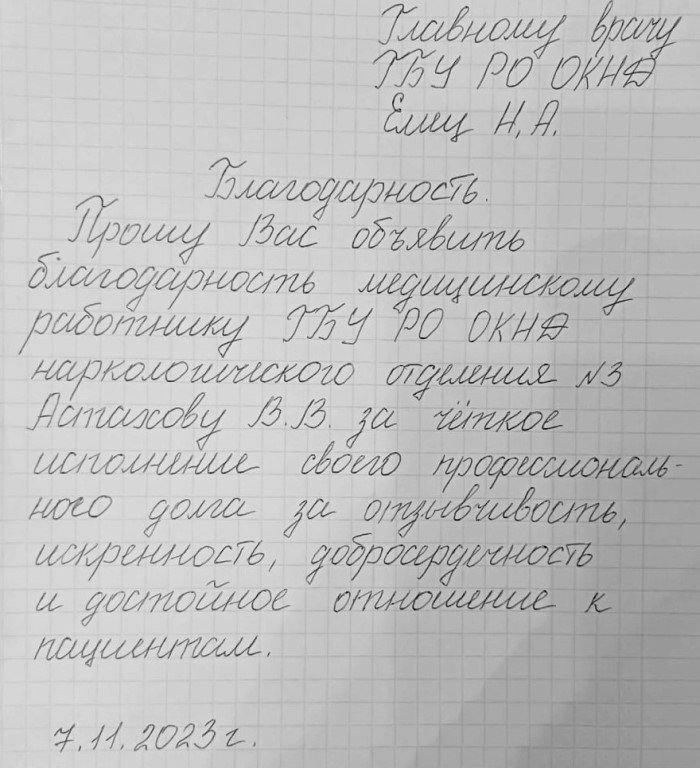 Главному врачу
ГБУ РО ОКНД
Емец Н.А.
Благодарность.
Прошу Вас объявить
благодарность медицинскому
работнику ГБУ РО ОКНД
наркологического отделения №3
Астахову В.В. за чёткое
исполнение своего профессиональ-
ного долга за отзывчивость,
искренность, добросердечность
и достойное отношение к
пациентам.
7.11.2023г.